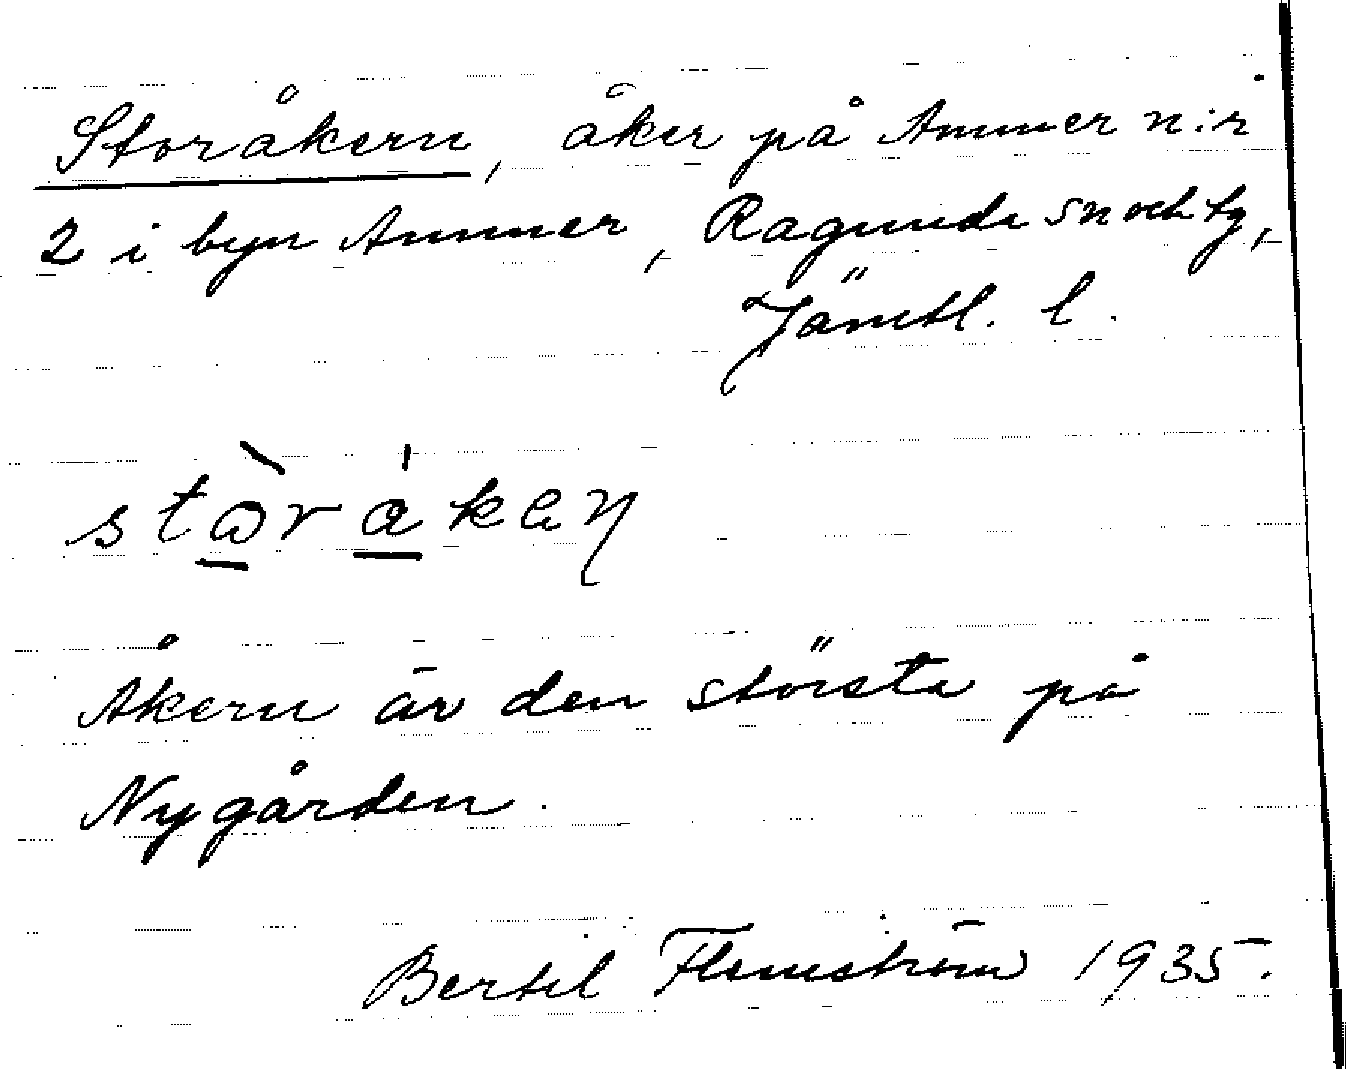 Storåkern, åker på Ammer n:r
2 i byn Ammer, Ragunda sn och tg,
Jämtl. l.
stòråkaŋ
Åkern är den största på
Nygården.
Bertil Flemström 1935.